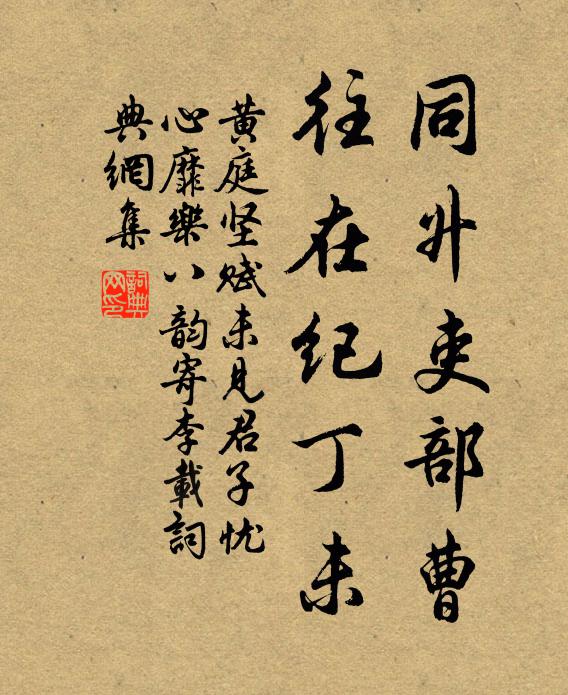 同升吏部曹
往在纪丁未
黄庭坚赋未见君子忧
心靡樂八韵寄李載詞
典網集
詞典
网印